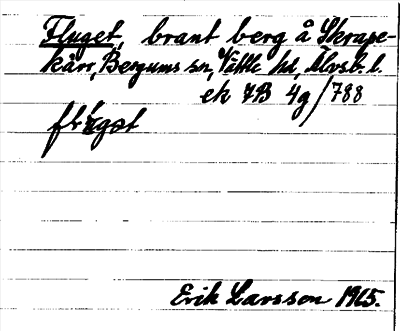 Fluget, brant berg å Skrape-
kärr, Bergums sn, Vättle hd, Älvsb. l.
ek 7B 4g/788
Erik Larsson 1965.